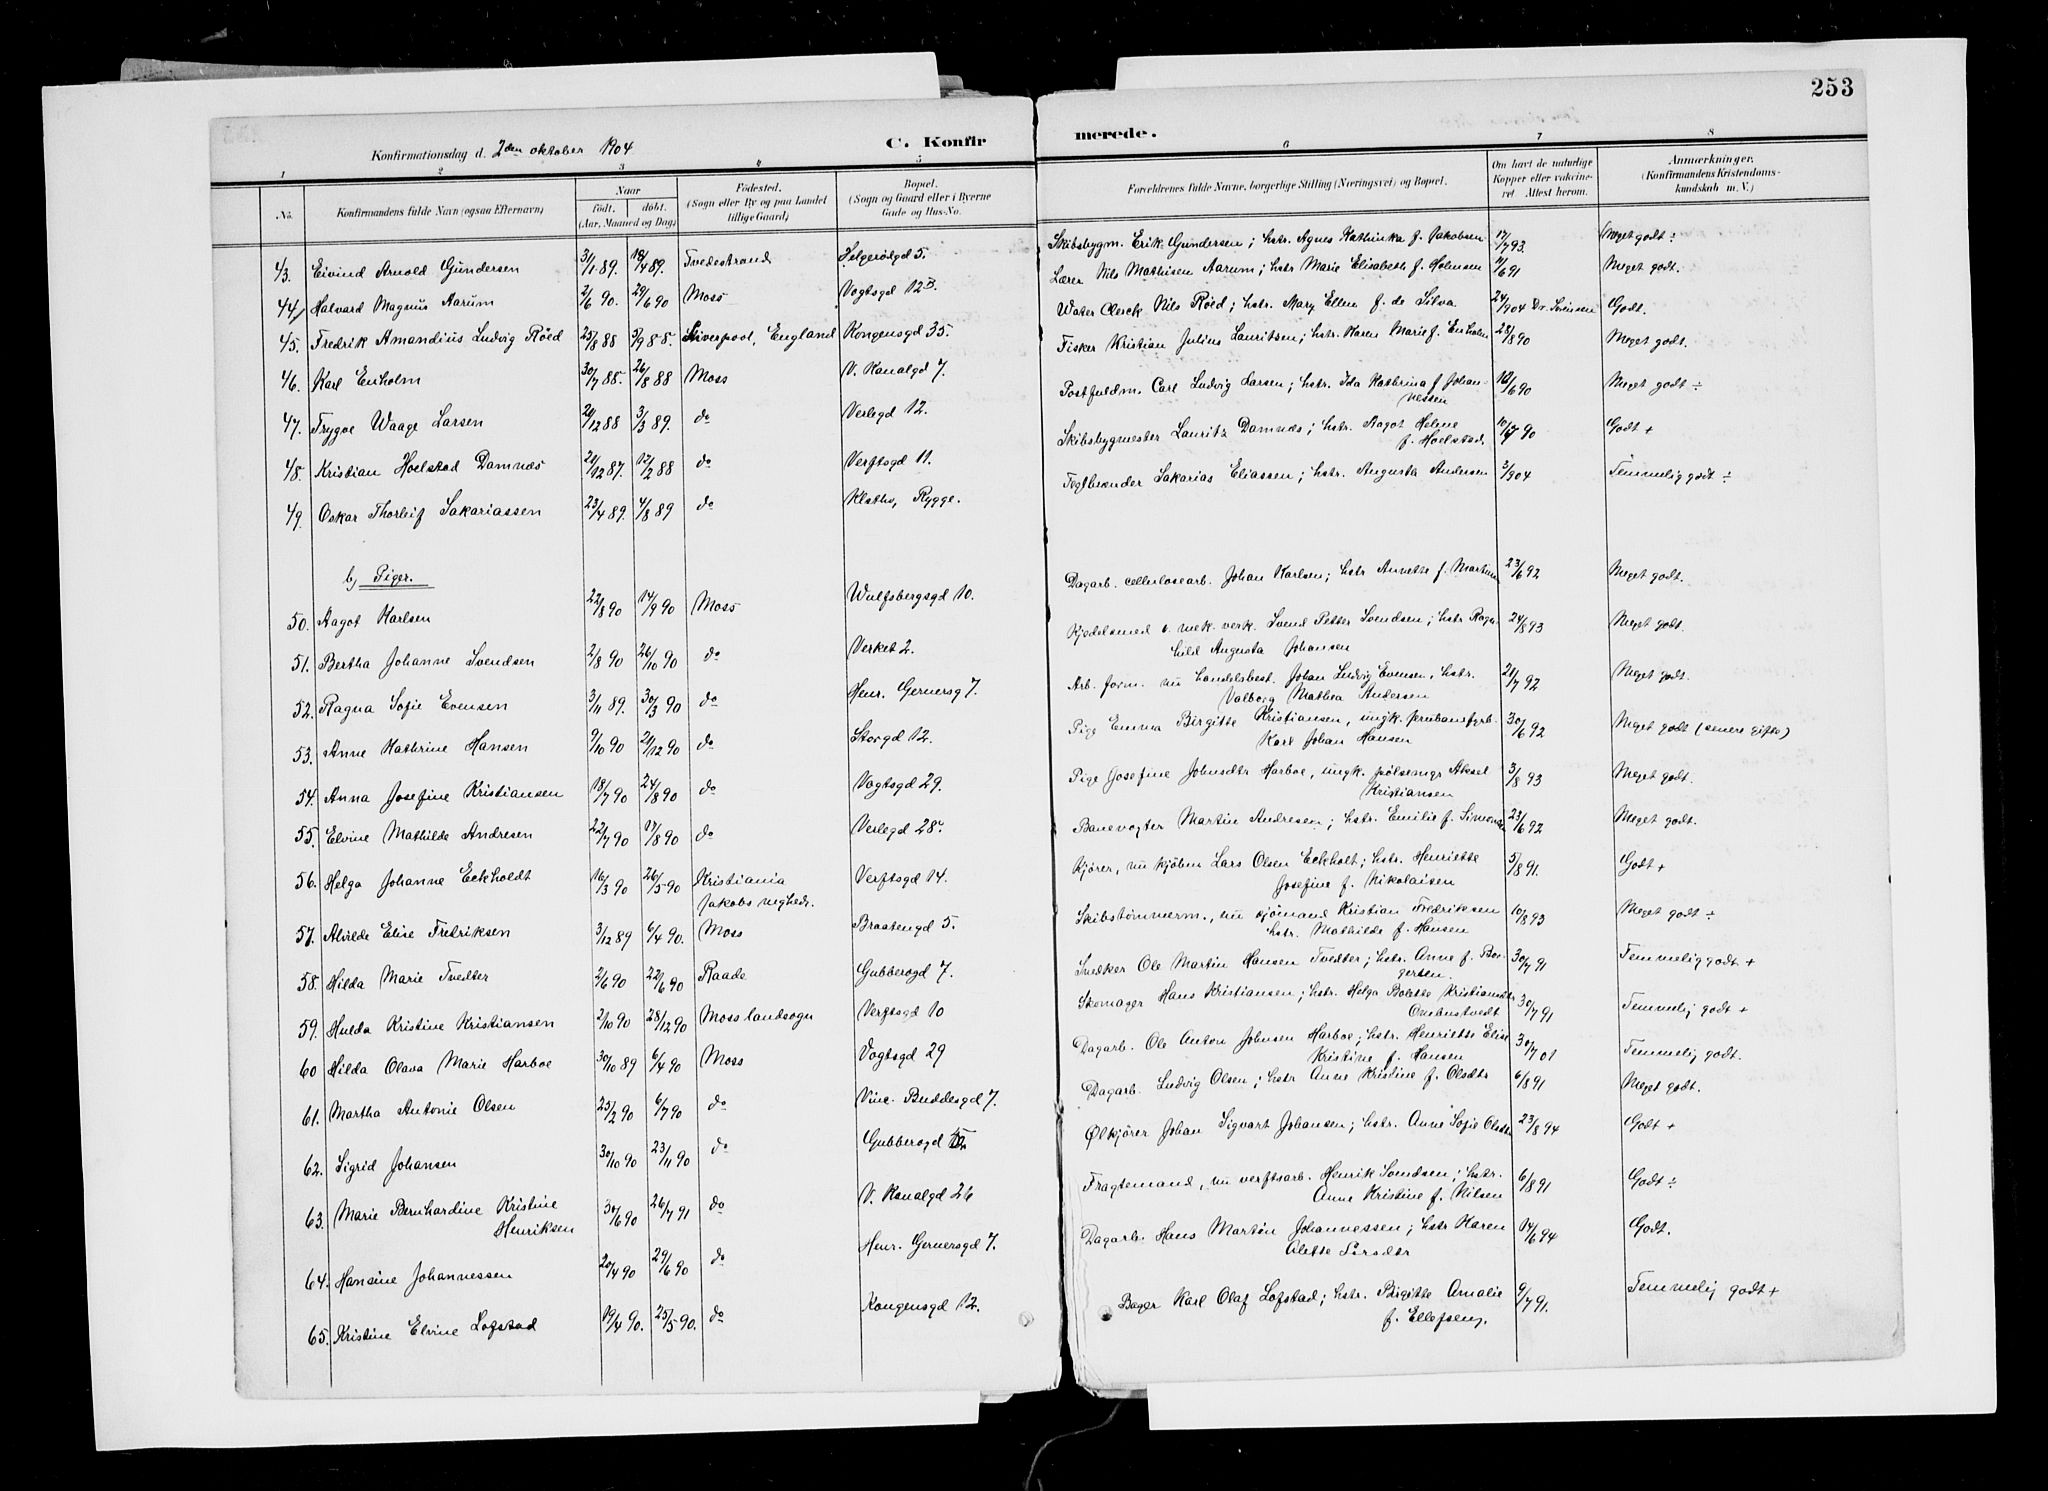 253
Konfirmationsdag d. 2den oktober 1904
C. Konfirmerede.
1 2 3 4 5 6 7 8
No. Konfirmandens fulde Navn (ogsaa Efternavn) Naar født. døbt. (Aar, Maaned og Dag) Fødested. (Sogn eller By og paa Landet tillige Gaard) Bopæl. (Sogn og Gaard eller i Byerne Gade og Hus-No. Forældrenes fulde Navne, borgerlige Stilling (Næringsvei) og Bopæl. Om havt de naturlige Kopper eller vaccineret. Attest herom. Anmærkninger. (Konfirmandens Kristendomskundskab m. V.)
43. Eivind Arnold Gundersen 31/1 89. 18/4 89. Tvedestrand Helgerødgd 5. Skibsbygm. Erik Gundersen; hstr. Agnes Kathinka f. Jakobsen 17/7 93 Meget godt ÷
44. Halvard Magnus Aarum 2/6 90. 29/6 90 Moss Vogtsgd 12B. Lærer Nils Mathisen Aarum; hstr Marie Elisabeth f. Holmsen 11/6 91 Meget godt.
45. Fredrik Amandius Ludvig Röed 25/8 88 5/9 88. Liverpool, England Kongensgd 35. Water Clerck Nils Röed; hstr. Mary Ellen f. de Silva 24/904 Dr. Sörensen Godt.
46. Karl Enholm 30/7 88. 26/8 88 Moss V. Kanalgd 7. Fisker Kristian Julius Lauritsen; hstr. Karen Marie f. Enholm 28/8 90 Meget godt.
47. Trygve Waage Larsen 21/12 88 3/3 89. do Verlegd 12. Postfuldm. Carl Ludvig Larsen; hstr. Ida Kathrina f Johan-
nessen 12/6 90 Meget godt ÷
48. Kristian Hoelstad Damnæs 21/12 87. 12/2 88 do Verftsgd 11. Skibsbygmester Lauritz Damnæs; hstr. Aagot Helene
f. Hoelstad. 10/7 90 Godt +
49. Oskar Thorleif Sakariassen 23/4 89. 4/8 89 do Klsthv, Rygge. Teglbrænder Sakarias Eliassen; hstr. Augusta Andersen 3/904 Temmelig godt ÷
b) Piger.
50. Aagot Karlsen 22/8 90 14/9 90 Moss Wulfsbergsgd 10. Dagarb. cellulosearb. Johan Karlsen; hstr Annette f. Martinsen 23/6 92 Meget godt.
51. Bertha Johanne Svendsen 2/8 90 26/10 90 do Verket 2. Kjedelsmed v. mek. verk. Svend Petter Svendsen; hstr Ragn-
hild Augusta Johansen 24/8 93 Meget godt.
52. Ragna Sofie Evensen 3/11 89. 30/3 90 do Henr. Gernersg 7. Arb. form. nu handelsbest. Johan Ludvig Evensen, hstr.
Valborg Mathea Andersen 21/7 92 Meget godt.
53. Anne Kathrine Hansen 9/10 90 21/12 90 do Storgd 12. Pige Emma Birgitte Kristiansen, ungk. jernbanefyrb.
Karl Johan Hansen 30/6 92 Meget godt (senere gifte)
54. Anna Josefine Kristiansen 18/7 90 24/8 90 do Vogtsgd 29. Pige Josefine Johnsdtr Harboe, ungk. pölsemgr Aksel
Kristiansen 3/8 93 Meget godt.
55. Elvine Mathilde Andresen 22/7 90 17/8 90 do Verlegd 28. Banevogter Martin Andresen; hstr. Emilie f. Simensen 23/6 92 Meget godt.
56. Helga Johanne Eckholdt 16/3 90 26/5 90 Kristiania
Jakobs Verftsgd 14. Kjörer, nu kjöbm Lars Olsen Eckholt; hstr. Henriette
Josefine f. Nikolaisen 5/8 91. Godt +
57. Alvilde Elise Fredriksen 3/12 89 6/4 90. Moss Braatengd 5. Skibstömmerm., nu sjömand Kristian Fredriksen
hstr. Mathilde f. Hansen 10/8 93 Meget godt ÷
58. Hilda Marie Tvedter 2/6 90 22/6 90 Raade Gubberogd 7. Snedker Ole Martin Hansen Tvedter; hstr. Anne f. Bor-
gersen. 30/7 91 Temmelig godt +
59. Hulda Kristine Kristiansen 2/10 90 28/12 90 Moss landsogn Verftsgd 10 Skomager Hans Kristiansen; hstr. Helga Bolette Kristiansdtr
Ombustvedt 30/7 91 Temmelig godt +
60 Hilda Olava Marie Harboe 30/10 89 6/4 90 Moss Vogtsgd 29 Dagarb. Ole Anton Johnsen Harboe; hstr. Henriette Elise
Kristine f. Hansen 30/7 01 Temmelig godt.
61. Martha Antonie Olsen 25/2 90 6/7 90 do Vinc. Buddesgd 7. Dagarb. Ludvig Olsen; hstr Anne Kristine f. Olsdtr 6/8 91 Meget godt.
62. Sigrid Johansen 30/10 90 23/11 90 do Gubberogd Ölkjörer Johan Sigvart Johansen; hstr. Anne Sofie Olsdtr 23/8 94 Godt +
63. Marie Bernhardine Kristine
Henriksen 30/6 90 26/7 91 do V. Kanalgd 26 Fragtemand, nu verftsarb. Henrik Svendsen; hstr.
Anne Kristine f. Nilsen 6/8 91 Godt ÷
64. Hansine Johannessen 20/4 90 29/6 90 do Henr. Gernersgd 7. Dagarb. Hans Martin Johannessen; hstr Karen
Alette Larsdtr 14/6 94 Godt.
65. Kristine Elvine Lofstad 19/4 90. 25/5 90. do Kongensgd 12. Bager Karl Olaf Lofstad; hstr. Birgitte Amalie
f. Ellefsen. 9/7 91. Temmelig godt +